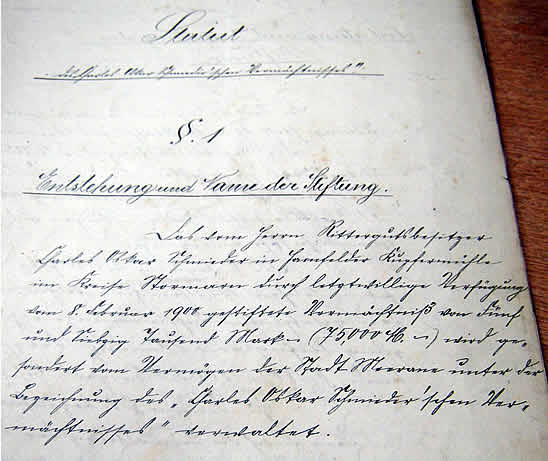 Statut
des Charles Oskar Schmieder'schen Vermächtnisses".
§. 1
Entstehung und Name der Stiftung.
Das vom Herrn Rittergutsbesitzer
Charles Oskar Schmieder in Hamfelder Kupfermühle
im Kreise Stormarn durch letztwillige Verfügung
vom 8. Februar 1900 gestiftete Vermächtniß von Fünf
und Siebzig Tausend Mark (75000 M. –) wird ge-
sondert vom Vermögen der Stadt Meerane unter der
Bezeichnung des „Charles Oskar Schmieder'schen Ver-
mächtnisses" verwaltet.